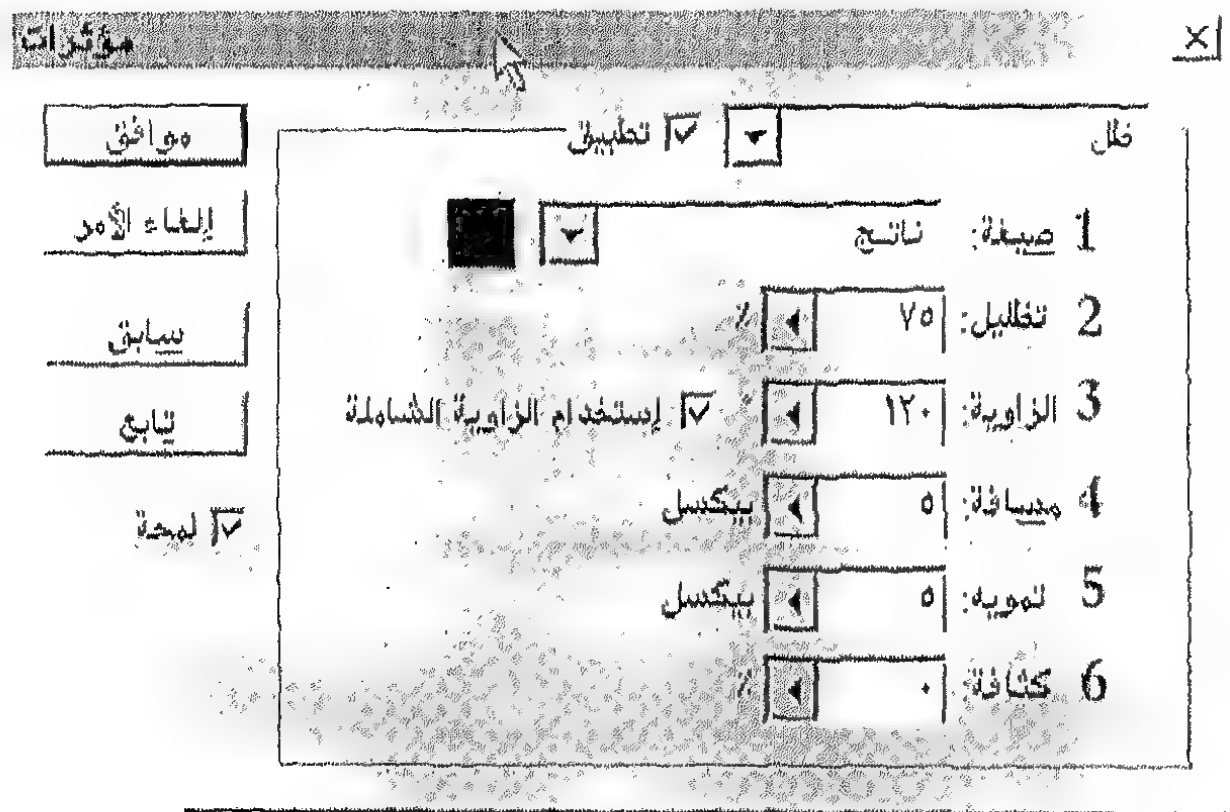 مؤثرات
ظل تطبيق
1 صيغة: ناتج
2 تظليل: ٧٥ ٪
3 الزاوية: ١٢٠ ° إستخدام الزاوية الشاملة
4 مسافة: ٥ بيكسل
5 تمويه: ٥ بيكسل
6 كثافة: ٠ ٪
موافق
إلغاء الأمر
سابق
تابع
لمحة